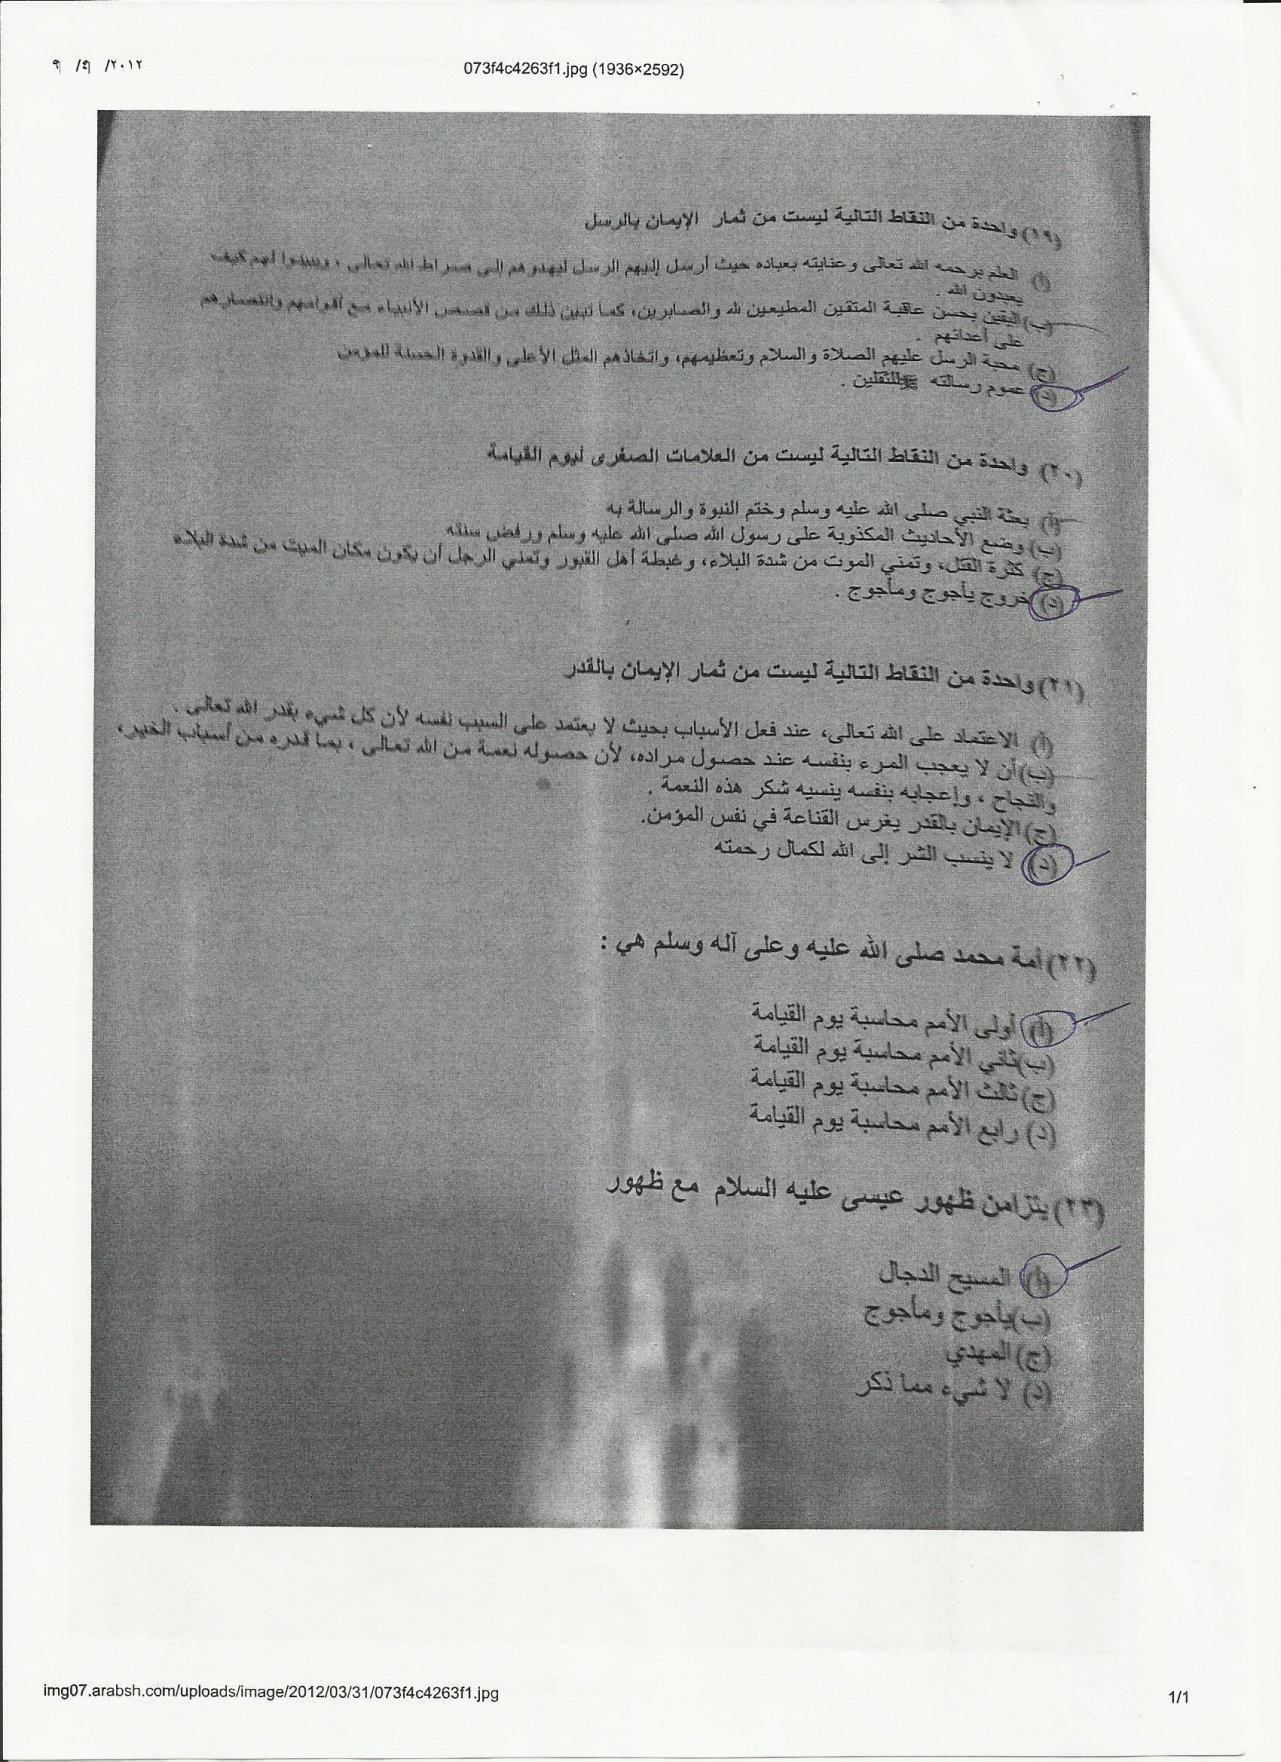 ٩ /٤ /٢٠١٢
073f4c4263f1.jpg (1936×2592)
(١٩) واحدة من النقاط التالية ليست من ثمار الإيمان بالرسل
(أ) العلم برحمه الله تعالى وعنايته بعباده حيث أرسل إليهم الرسل ليهدوهم إلى صراط الله تعالى ، ويبينوا لهم كيف
يعبدون الله .
(ب) اليقين بحسن عاقبة المتقين المطيعين لله والصابرين، كما تبين ذلك من قصص الأنبياء مع أقوامهم وانتصارهم
على أعدائهم .
(ج) محبة الرسل عليهم الصلاة والسلام وتعظيمهم، واتخاذهم المثل الأعلى والقدوة الحسنة للمؤمن
(د) عموم رسالته ﷺ للثقلين .
(٢٠) واحدة من النقاط التالية ليست من العلامات الصغرى ليوم القيامة
(أ) بعثة النبي صلى الله عليه وسلم وختم النبوة والرسالة به
(ب) وضع الأحاديث المكذوبة على رسول الله صلى الله عليه وسلم ورفض سنته
(ج) كثرة القتل، وتمني الموت من شدة البلاء، وغبطة أهل القبور وتمني الرجل أن يكون مكان الميت من شدة البلاء
(د) خروج يأجوج ومأجوج .
(٢١) واحدة من النقاط التالية ليست من ثمار الإيمان بالقدر
(أ) الاعتماد على الله تعالى، عند فعل الأسباب بحيث لا يعتمد على السبب نفسه لأن كل شيء بقدر الله تعالى .
(ب) أن لا يعجب المرء بنفسه عند حصول مراده، لأن حصوله نعمة من الله تعالى ، بما قدره من أسباب الخير،
والنجاح ، وإعجابه بنفسه ينسيه شكر هذه النعمة .
(ج) الإيمان بالقدر يغرس القناعة في نفس المؤمن.
(د) لا ينسب الشر إلى الله لكمال رحمته
(٢٢) أمة محمد صلى الله عليه وعلى آله وسلم هي :
(أ) أولى الأمم محاسبة يوم القيامة
(ب) ثاني الأمم محاسبة يوم القيامة
(ج) ثالث الأمم محاسبة يوم القيامة
(د) رابع الأمم محاسبة يوم القيامة
(٢٣) يتزامن ظهور عيسى عليه السلام مع ظهور
(أ) المسيح الدجال
(ب) يأجوج ومأجوج
(ج) المهدي
(د) لا شيء مما ذكر
img07.arabsh.com/uploads/image/2012/03/31/073f4c4263f1.jpg
1/1